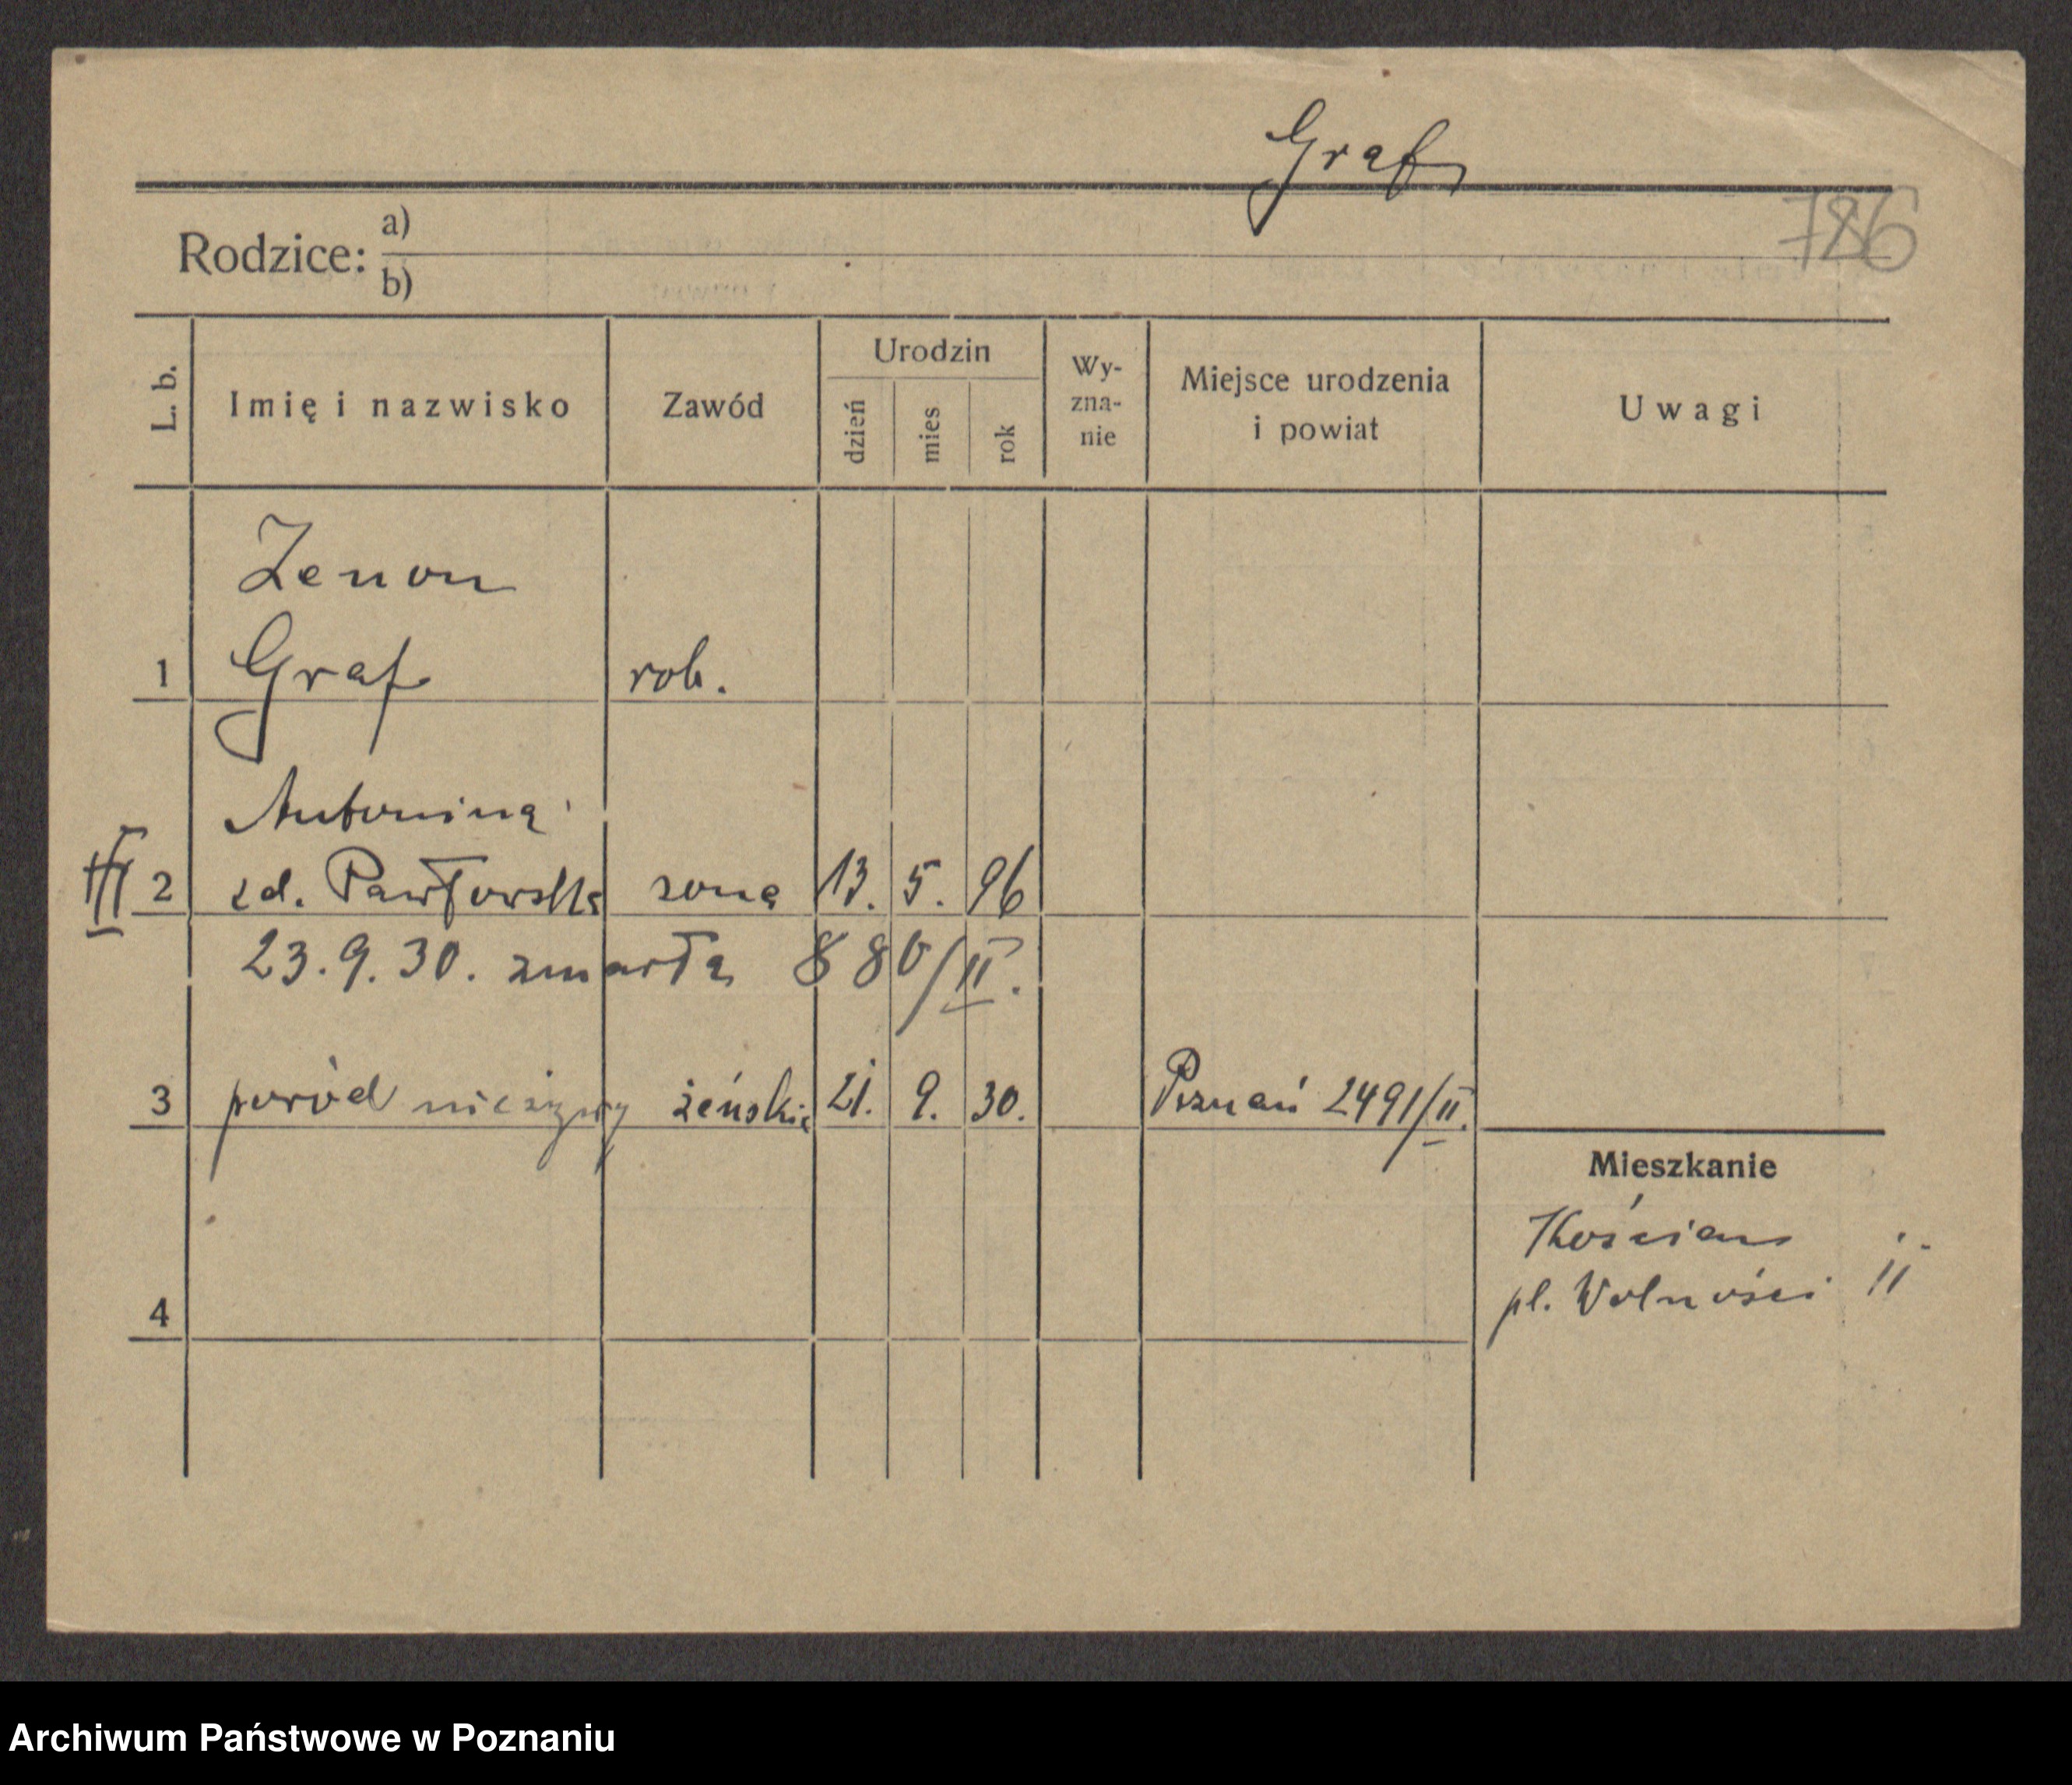 Graf
786
Rodzice: a)
b)
L. b.
Imię i nazwisko
Zawód
Urodzin
dzień
mies
rok
Wy-
zna-
nie
Miejsce urodzenia
i powiat
Uwagi
Zenon
1 Graf rob.
Antonina
2 zd. Pawłowska żona 13. 5. 96
23.9.30. zmarła 880/II.
3 poród nieżywy żeński 21. 9. 30. Poznań 2491/II.
Mieszkanie
Kościan
pl. Wolności 11
4
Archiwum Państwowe w Poznaniu